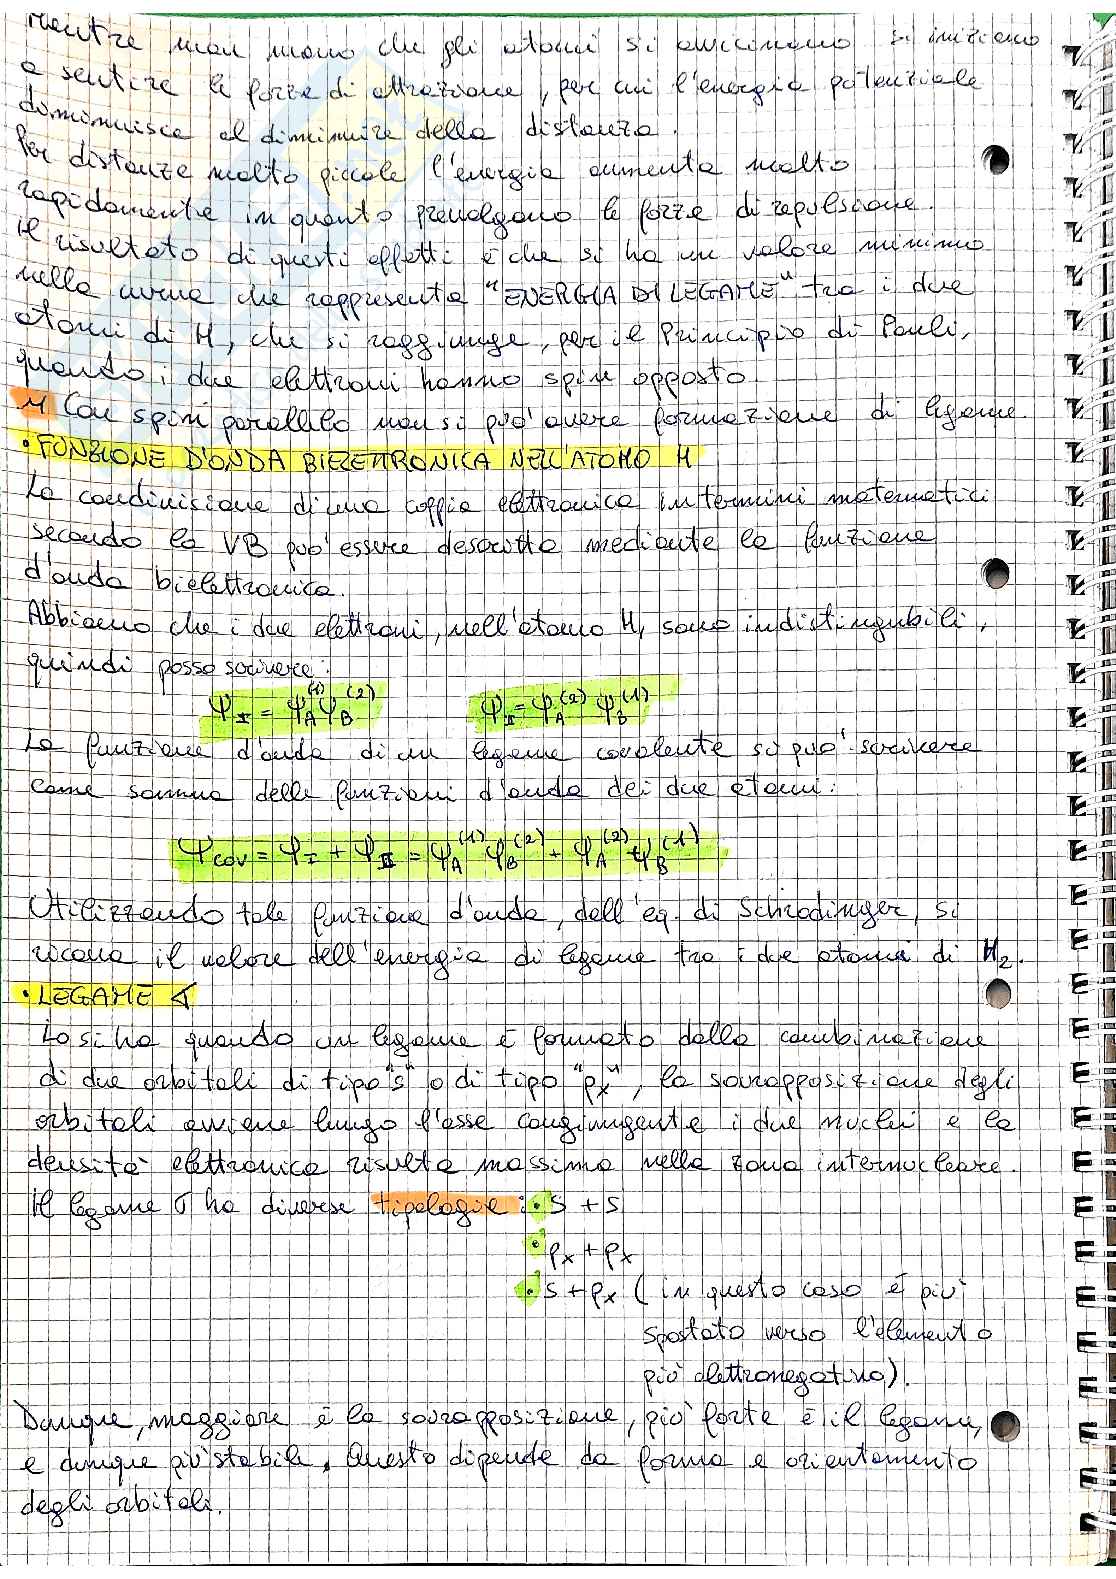 Mentre man mano che gli atomi si avvicinano si iniziano
a sentire le forze di attrazione, per cui l'energia potenziale
diminuisce al diminuire della distanza.
Per distanze molto piccole l'energia aumenta molto
rapidamente in quanto prevalgono le forze di repulsione.
Il risultato di questi effetti è che si ha un valore minimo
nella curva che rappresenta "ENERGIA DI LEGAME" tra i due
atomi di H, che si raggiunge, per il Principio di Pauli,
quando i due elettroni hanno spin opposto
Con spin parallelo non si può avere formazione di legame.
• FUNZIONE D'ONDA BIELETTRONICA NELL'ATOMO H
La condivisione di una coppia elettronica in termini matematici
secondo la VB può essere descritta mediante la funzione
d'onda bielettronica.
Abbiamo che i due elettroni, nell'atomo H, sono indistinguibili,
quindi posso scrivere:
ψ_I = ψ_A^(1) ψ_B^(2) ψ_II = ψ_A^(2) ψ_B^(1)
La funzione d'onda di un legame covalente si può scrivere
come somma delle funzioni d'onda dei due atomi:
ψ_cov = ψ_I + ψ_II = ψ_A^(1) ψ_B^(2) + ψ_A^(2) ψ_B^(1)
Utilizzando tale funzione d'onda, dall'eq. di Schrodinger, si
ricava il valore dell'energia di legame tra i due atomi di H₂.
• LEGAME σ
Lo si ha quando un legame è formato dalla combinazione
di due orbitali di tipo "s" o di tipo "px", la sovrapposizione degli
orbitali avviene lungo l'asse congiungente i due nuclei e la
densità elettronica risulta massima nella zona internucleare.
Il legame σ ha diverse tipologie: • s + s
• px + px
• s + px (in questo caso è più
spostato verso l'elemento
più elettronegativo).
Dunque, maggiore è la sovrapposizione, più forte è il legame,
e dunque più stabile. Questo dipende da forma e orientamento
degli orbitali.